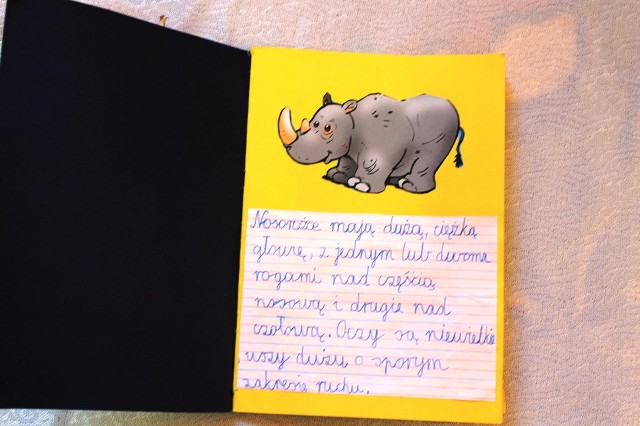 Nosorożce mają dużą, ciężką
głowę, z jednym lub dwoma
rogami nad częścią
nosową i drugie nad
czołową. Oczy są niewielkie
uszy dużu o sporym
zakresie ruchu.